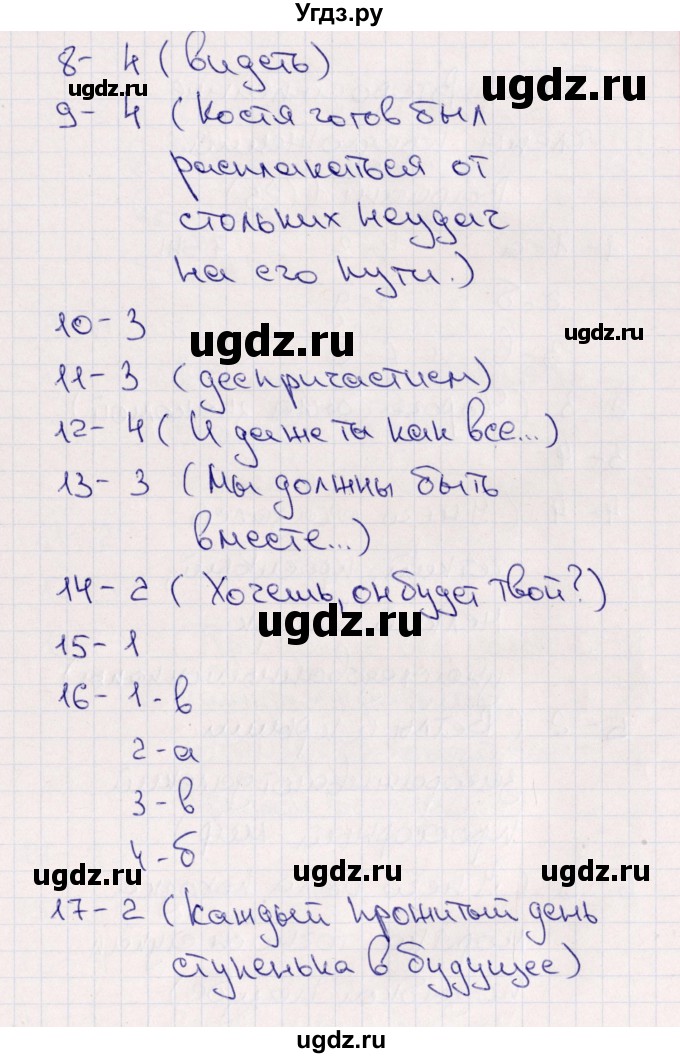 Угдз.ру
8- 4 (видеть)
ugdz.ru
9- 4 (Костя готов был
расплакаться от
ugdz.ru
стольких неудач
на его пути.)
10- 3
ugdz.ru
ugdz.ru
11- 3 (деепричастием)
12- 4 (И даже та как все...)
13- 3 (Мы должны быть
вместе...)
14- 2 (Хочешь, он будет твой?)
ugdz.ru
15- 1
16- 1-в
2-а
3-в
4-б
ugdz.ru
ugdz.ru
17- 2 (Каждый прожитый день
ступенька в будущее)
ugdz.ru
ugdz.ru